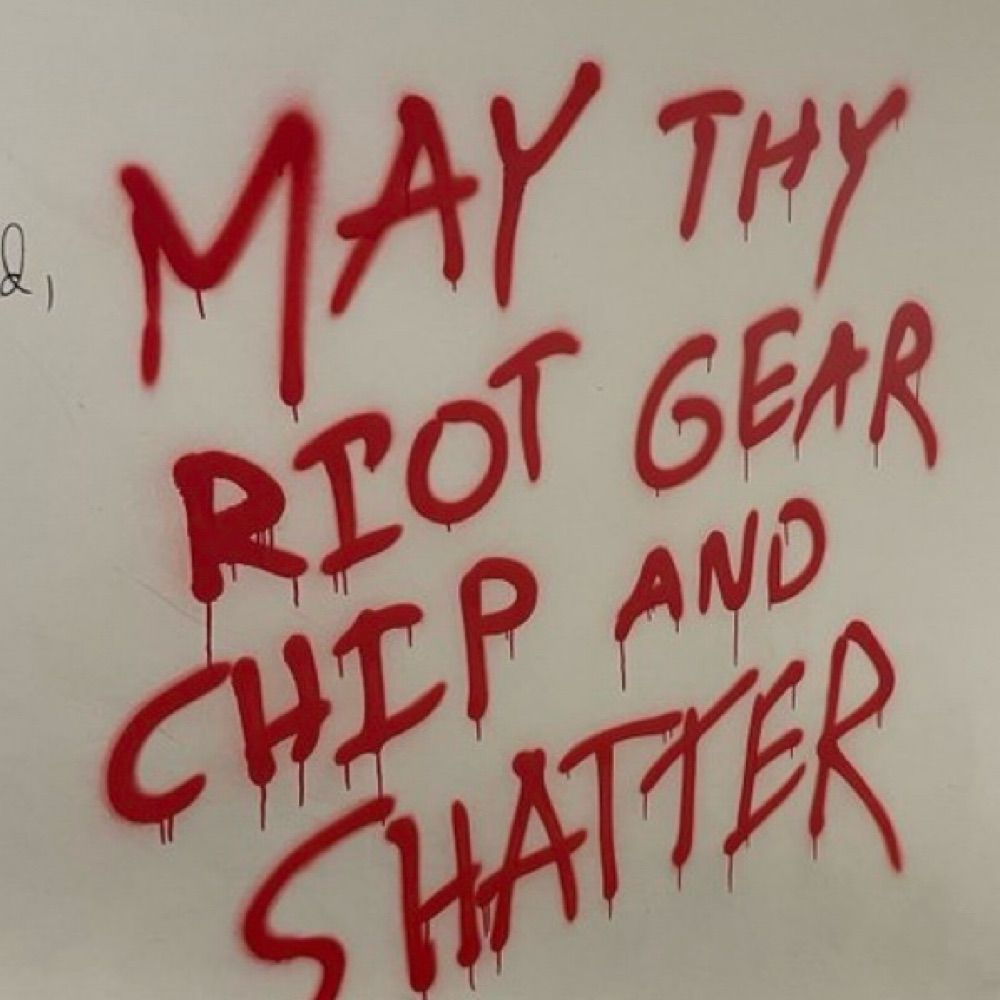 MAY THY
RIOT GEAR
CHIP AND
SHATTER